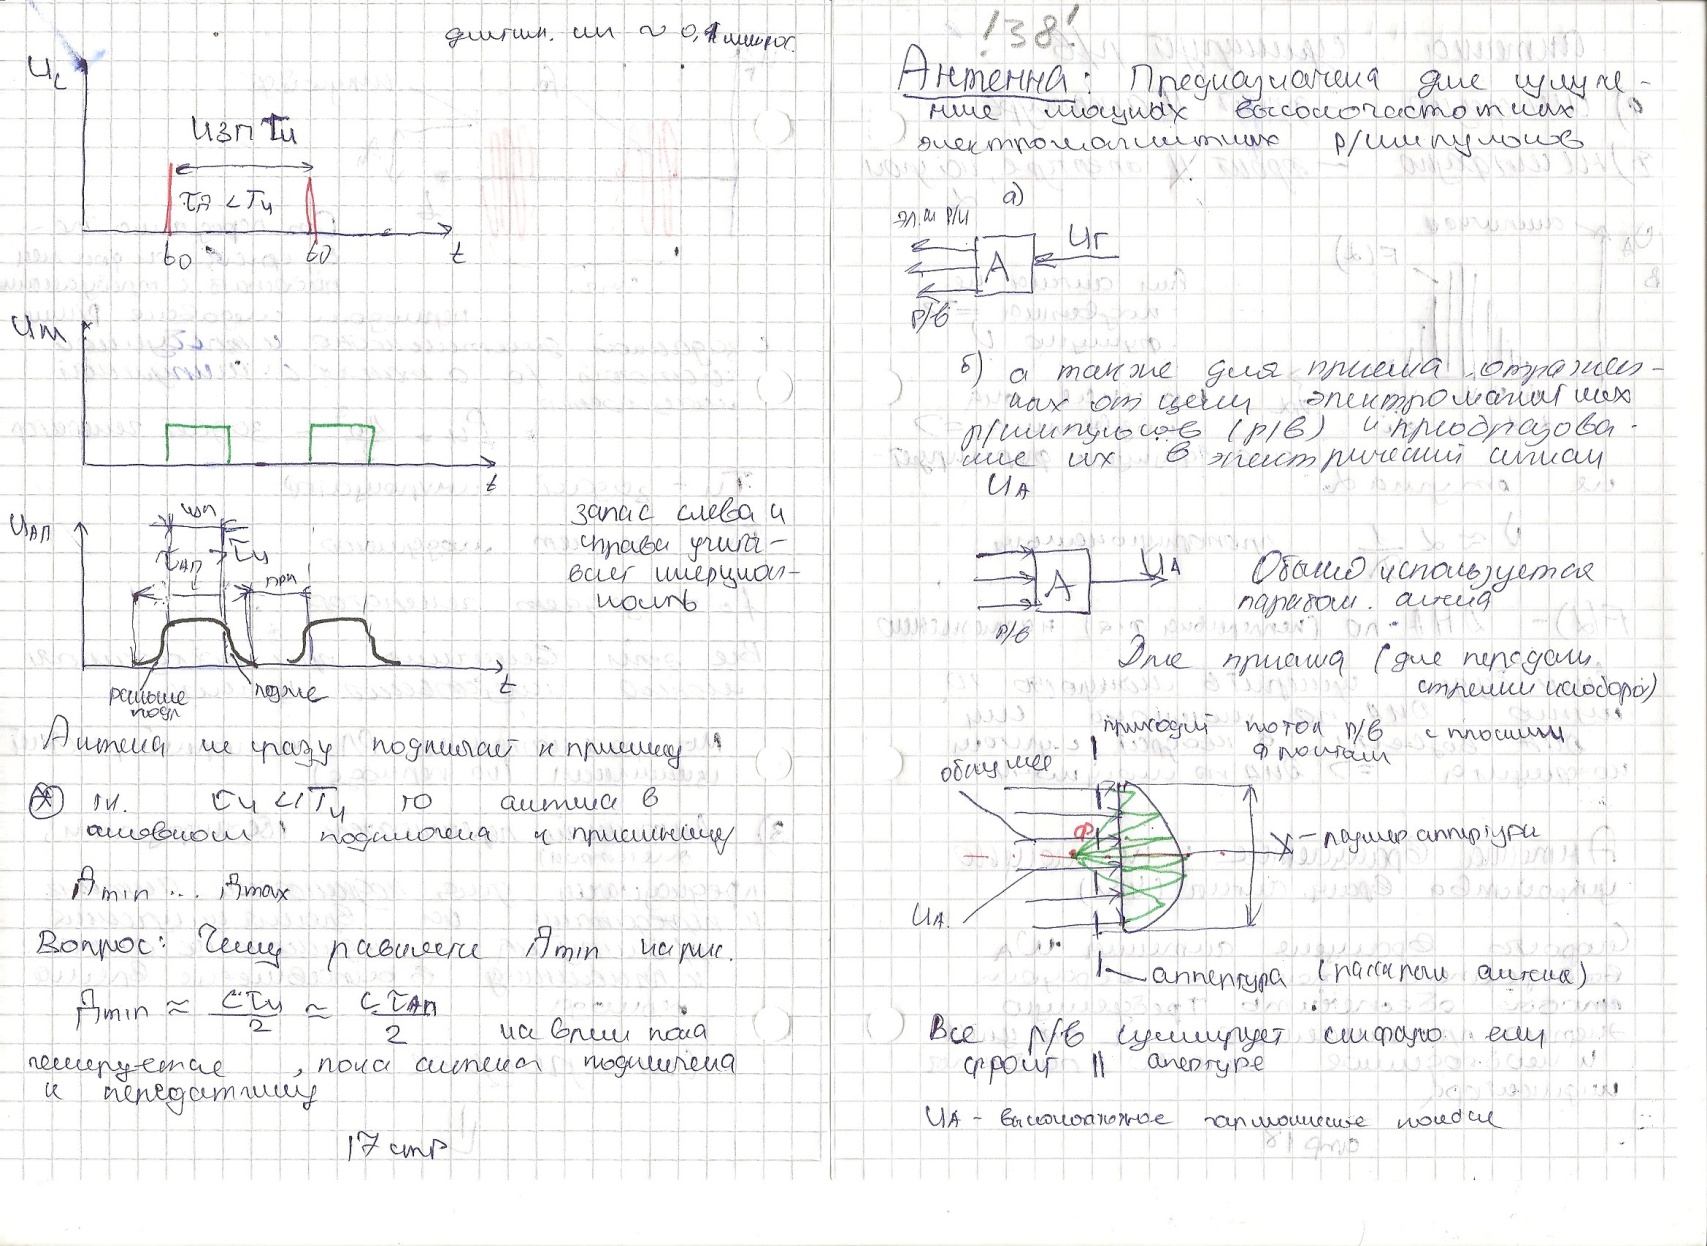 длительн. им ~ 0,1 микрос.
Uс
ИЗП Tи
τи < Tи
t0
t0
t
Uм
t
UАП
изл
τАП
τи
прп
запас слева и
справа учиты-
вает инерцион-
ность
раньше
подл
позже
t
Антена не сразу подлючает к приемнику
т.к. τи << Tи то антена в
основном подключена к приемнику
Дmin ... Дmax
Вопрос: Чему равняется Дmin на рис.
Дmin ≈ cτи/2 ≈ cτАП/2 на время пока
генерируется , пока антена подключена
к передатчику
17 стр
!38!
Антенна: Предназначена для излуче-
ние мощных высокочастотных
электромагнитных р/импульсов
а)
эл.м р/и
A
Uг
р/в
б) а также для приема отражен-
ных от цели электромагнитных
р/импульсов (р/в) и преобразова-
ние их в электрический сигнал
UA
A
UA
р/в
Обычно используется
парабол. антена
Для приема (для передачи
стрелки наоборот)
приходит поток р/в с плоским
фронтом
облучатель
Ф
размер аппертуры
UA
аппертура (раскрыв антены)
Все р/в суммирует синфазно если
фронт || апертуре
UA - высокочастотное гармоническое колебание